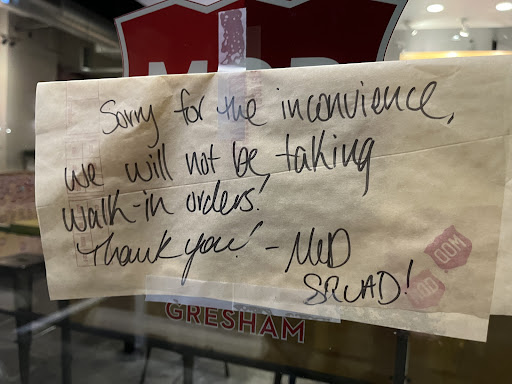 MOD
Sorry for the inconvience,
we will not be taking
walk-in orders!
Thank you! - MOD
SQUAD!
MOD
MOD
GRESHAM